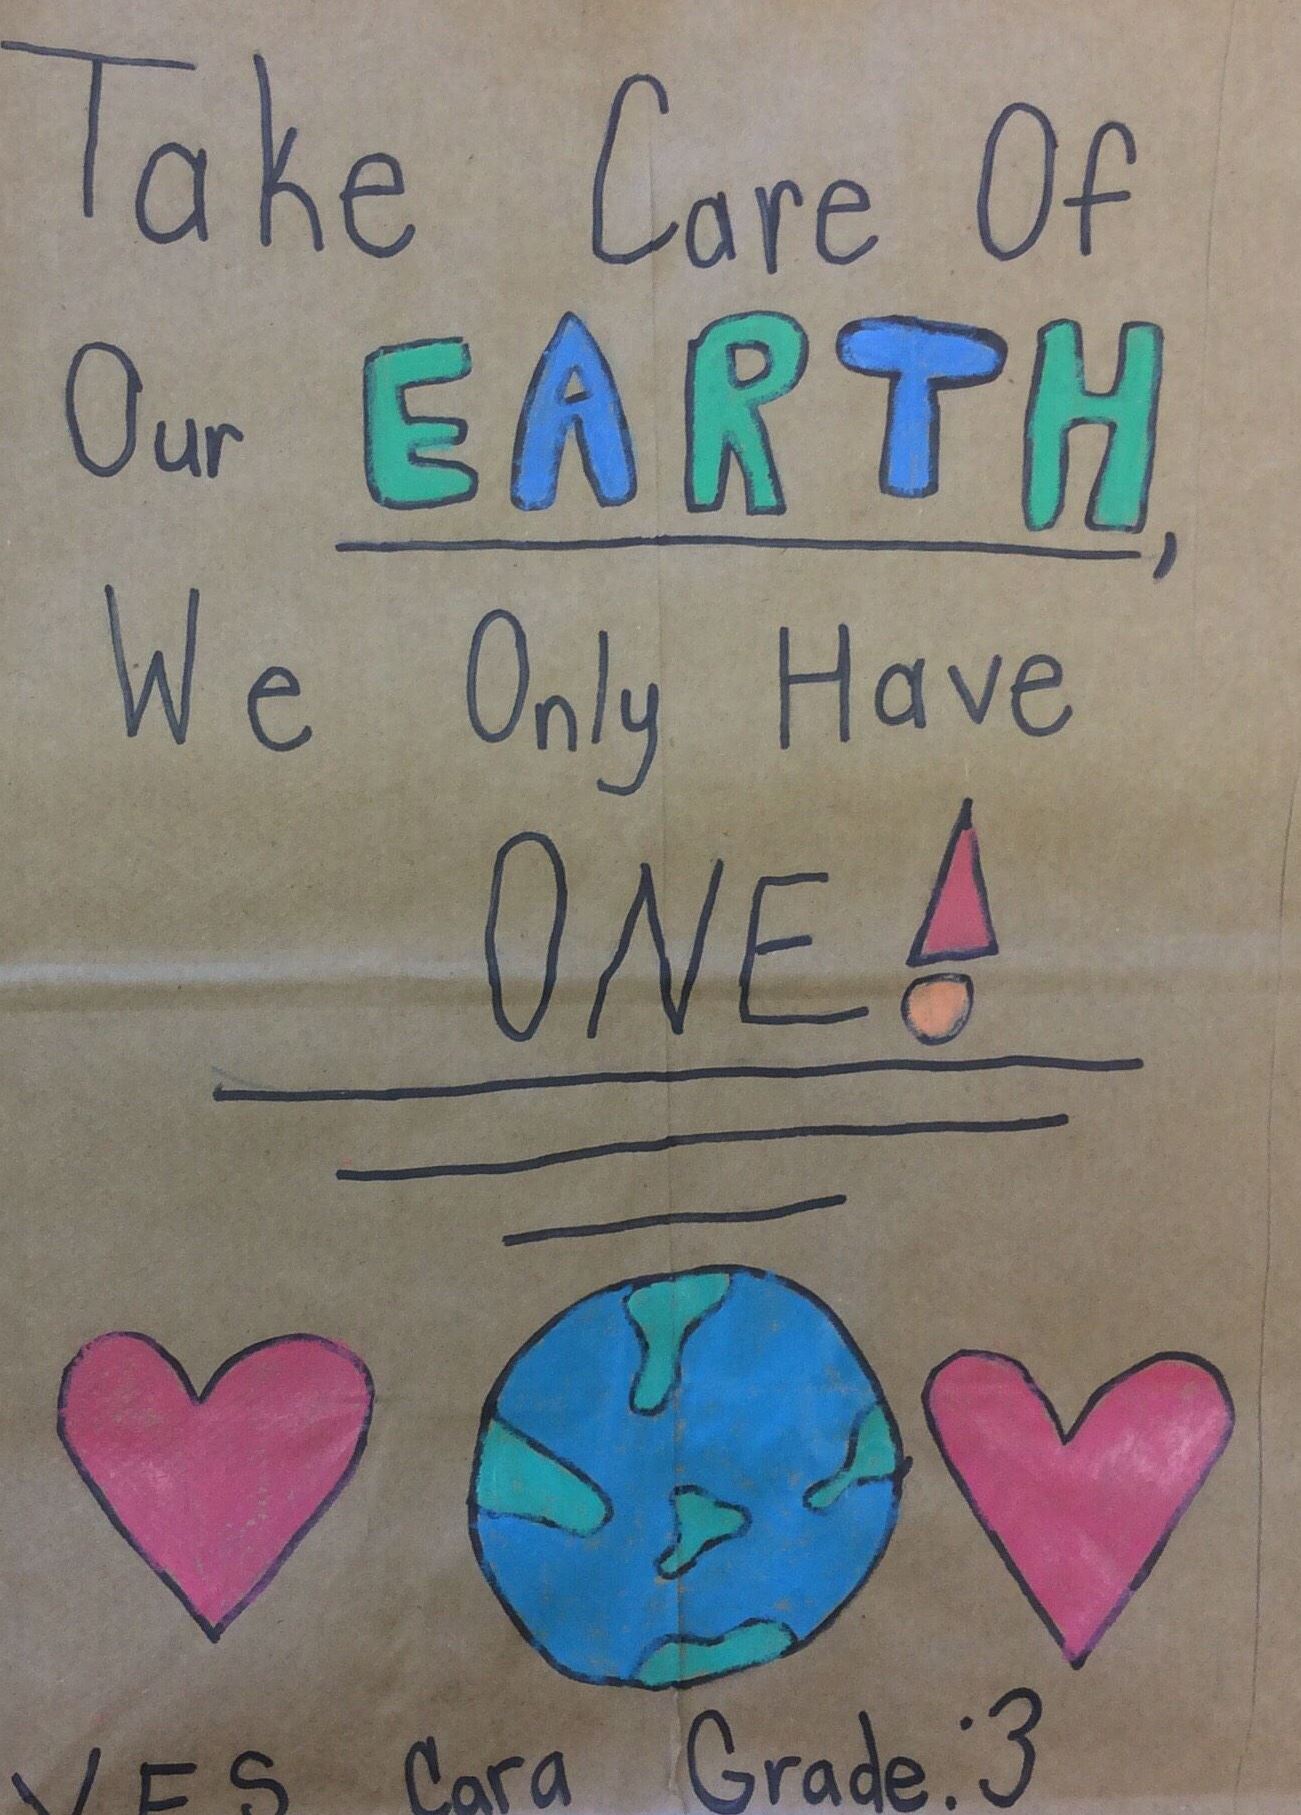 Take Care Of
Our EARTH,
We Only Have
ONE!
YES Cara Grade:3